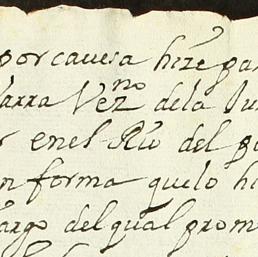 por cavesa hize pa
arra Vez^no dela Ju
r enel Rio del p
n forma quelo hi
argo del qual prom